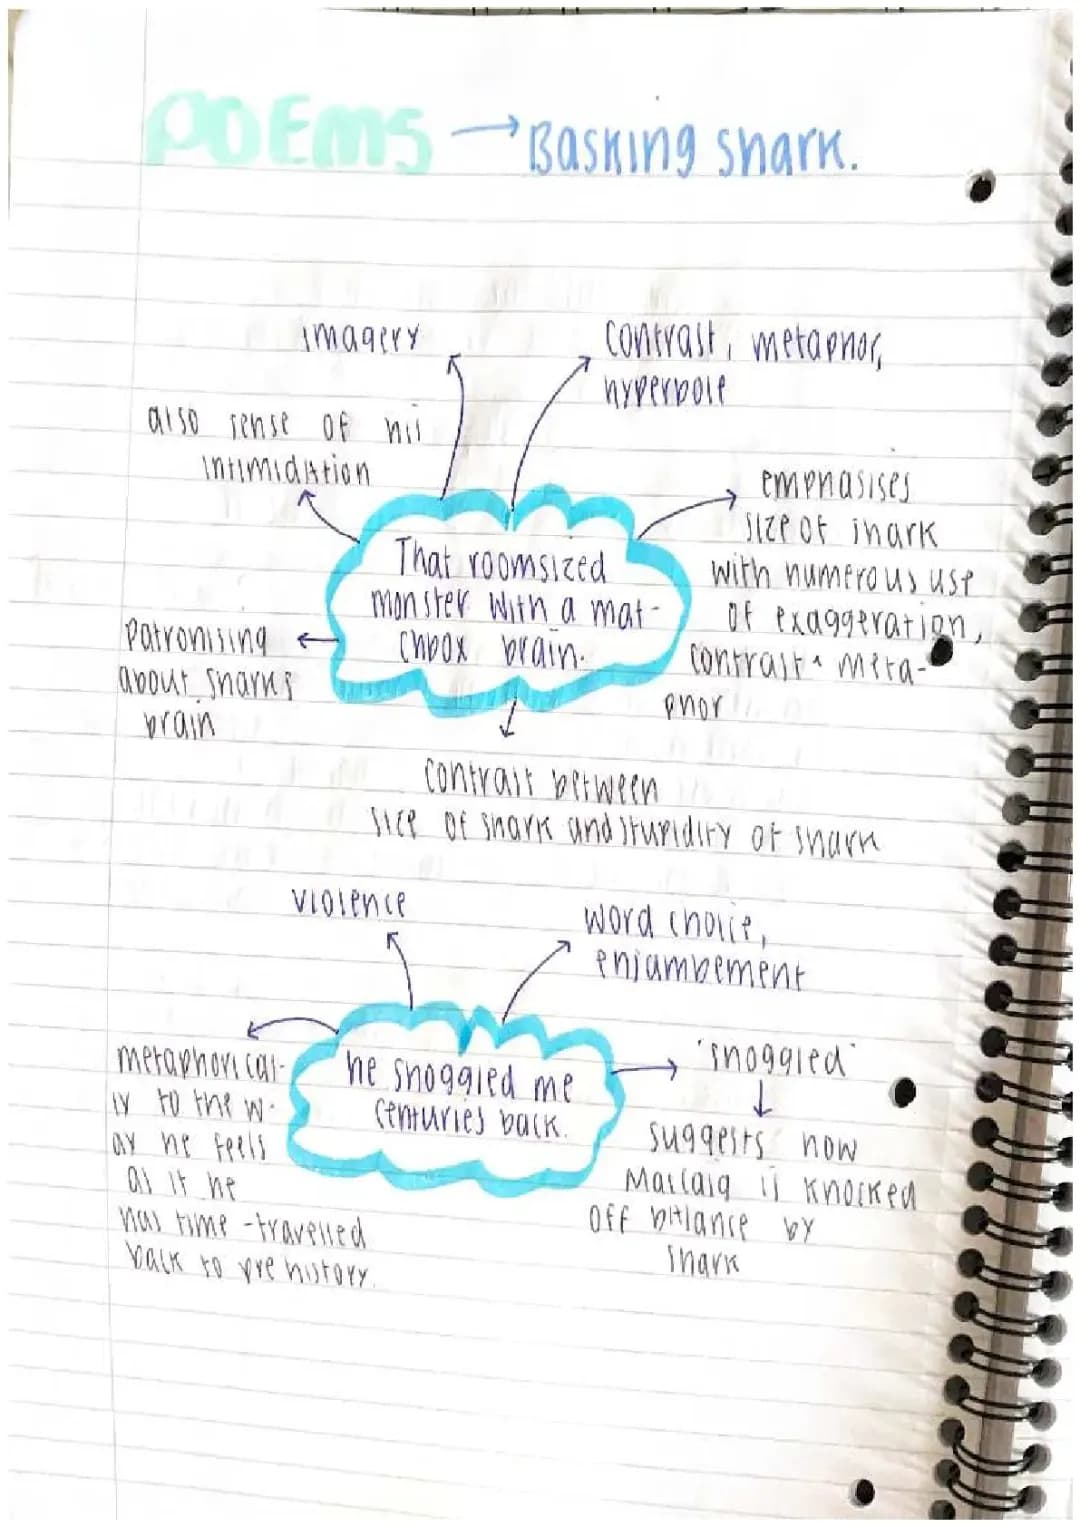 POEMS → Basking shark.
imagery
contrast, metaphor,
hyperbole
also sense of his
intimidation
emphasises
size of shark
with numerous use
of exaggeration,
contrast + meta-
phor
That roomsized
monster with a mat-
chbox brain.
Patronising
about sharks
brain
contrast between
size of shark and stupidity of shark
violence
word choice,
enjambement
he shoggled me
centuries back.
metaphorical-
ly to the w-
ay he feels
as if he
has time-travelled
back to pre history.
'shoggled'
↓
suggests how
Maccaig is knocked
off balance by
shark